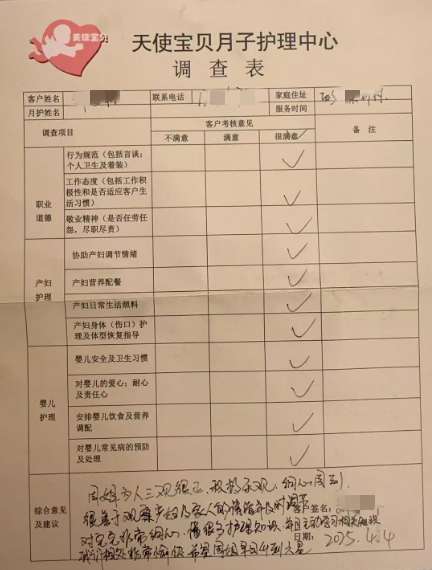 天使宝贝
天使宝贝月子护理中心
调查表
客户姓名 联系电话 家庭住址
月护姓名 服务时间
调查项目 客户考核意见 备注
不满意 满意 很满意
职业道德
行为规范（包括言谈；个人卫生及着装）
工作态度（包括工作积极性和是否适应客户生活习惯）
敬业精神（是否任劳任怨，尽职尽责）
产妇护理
协助产妇调节情绪
产妇营养配餐
产妇日常生活照料
产妇身体（伤口）护理及体型恢复指导
婴儿护理
婴儿安全及卫生习惯
对婴儿的爱心；耐心及责任心
安排婴儿饮食及营养调配
对婴儿常见病的预防及处理
综合意见及建议
周姐为人三观很正，积极乐观，细心周到，
很善于观察产妇及家人的情绪并及时
对宝宝非常细心，懂很多护理知识，并且主动学习相关
我们相处非常愉快，希望周姐早日升到六星
客户签名：
日期：2025.4.4